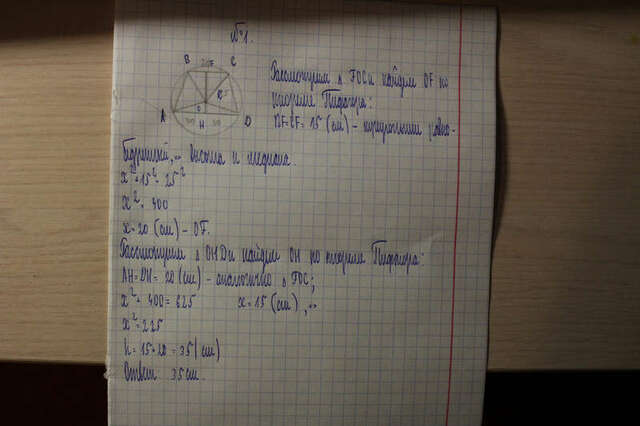 №1.
B C
Рассмотрим Δ FOC и найдём OF по
теореме Пифагора:
A O D
H
BF=CF= 15 (см) - треугольник равно-
бедренный, высота и медиана.
x²+15²=25²
x²=400
x=20 (см) - OF.
Рассмотрим Δ OHD и найдём OH по теореме Пифагора:
AH=DH= 20 (см) - аналогично Δ FOC;
x²+400=625 x=15 (см),
x²=225
h=15+20=35(см)
Ответ 35см.